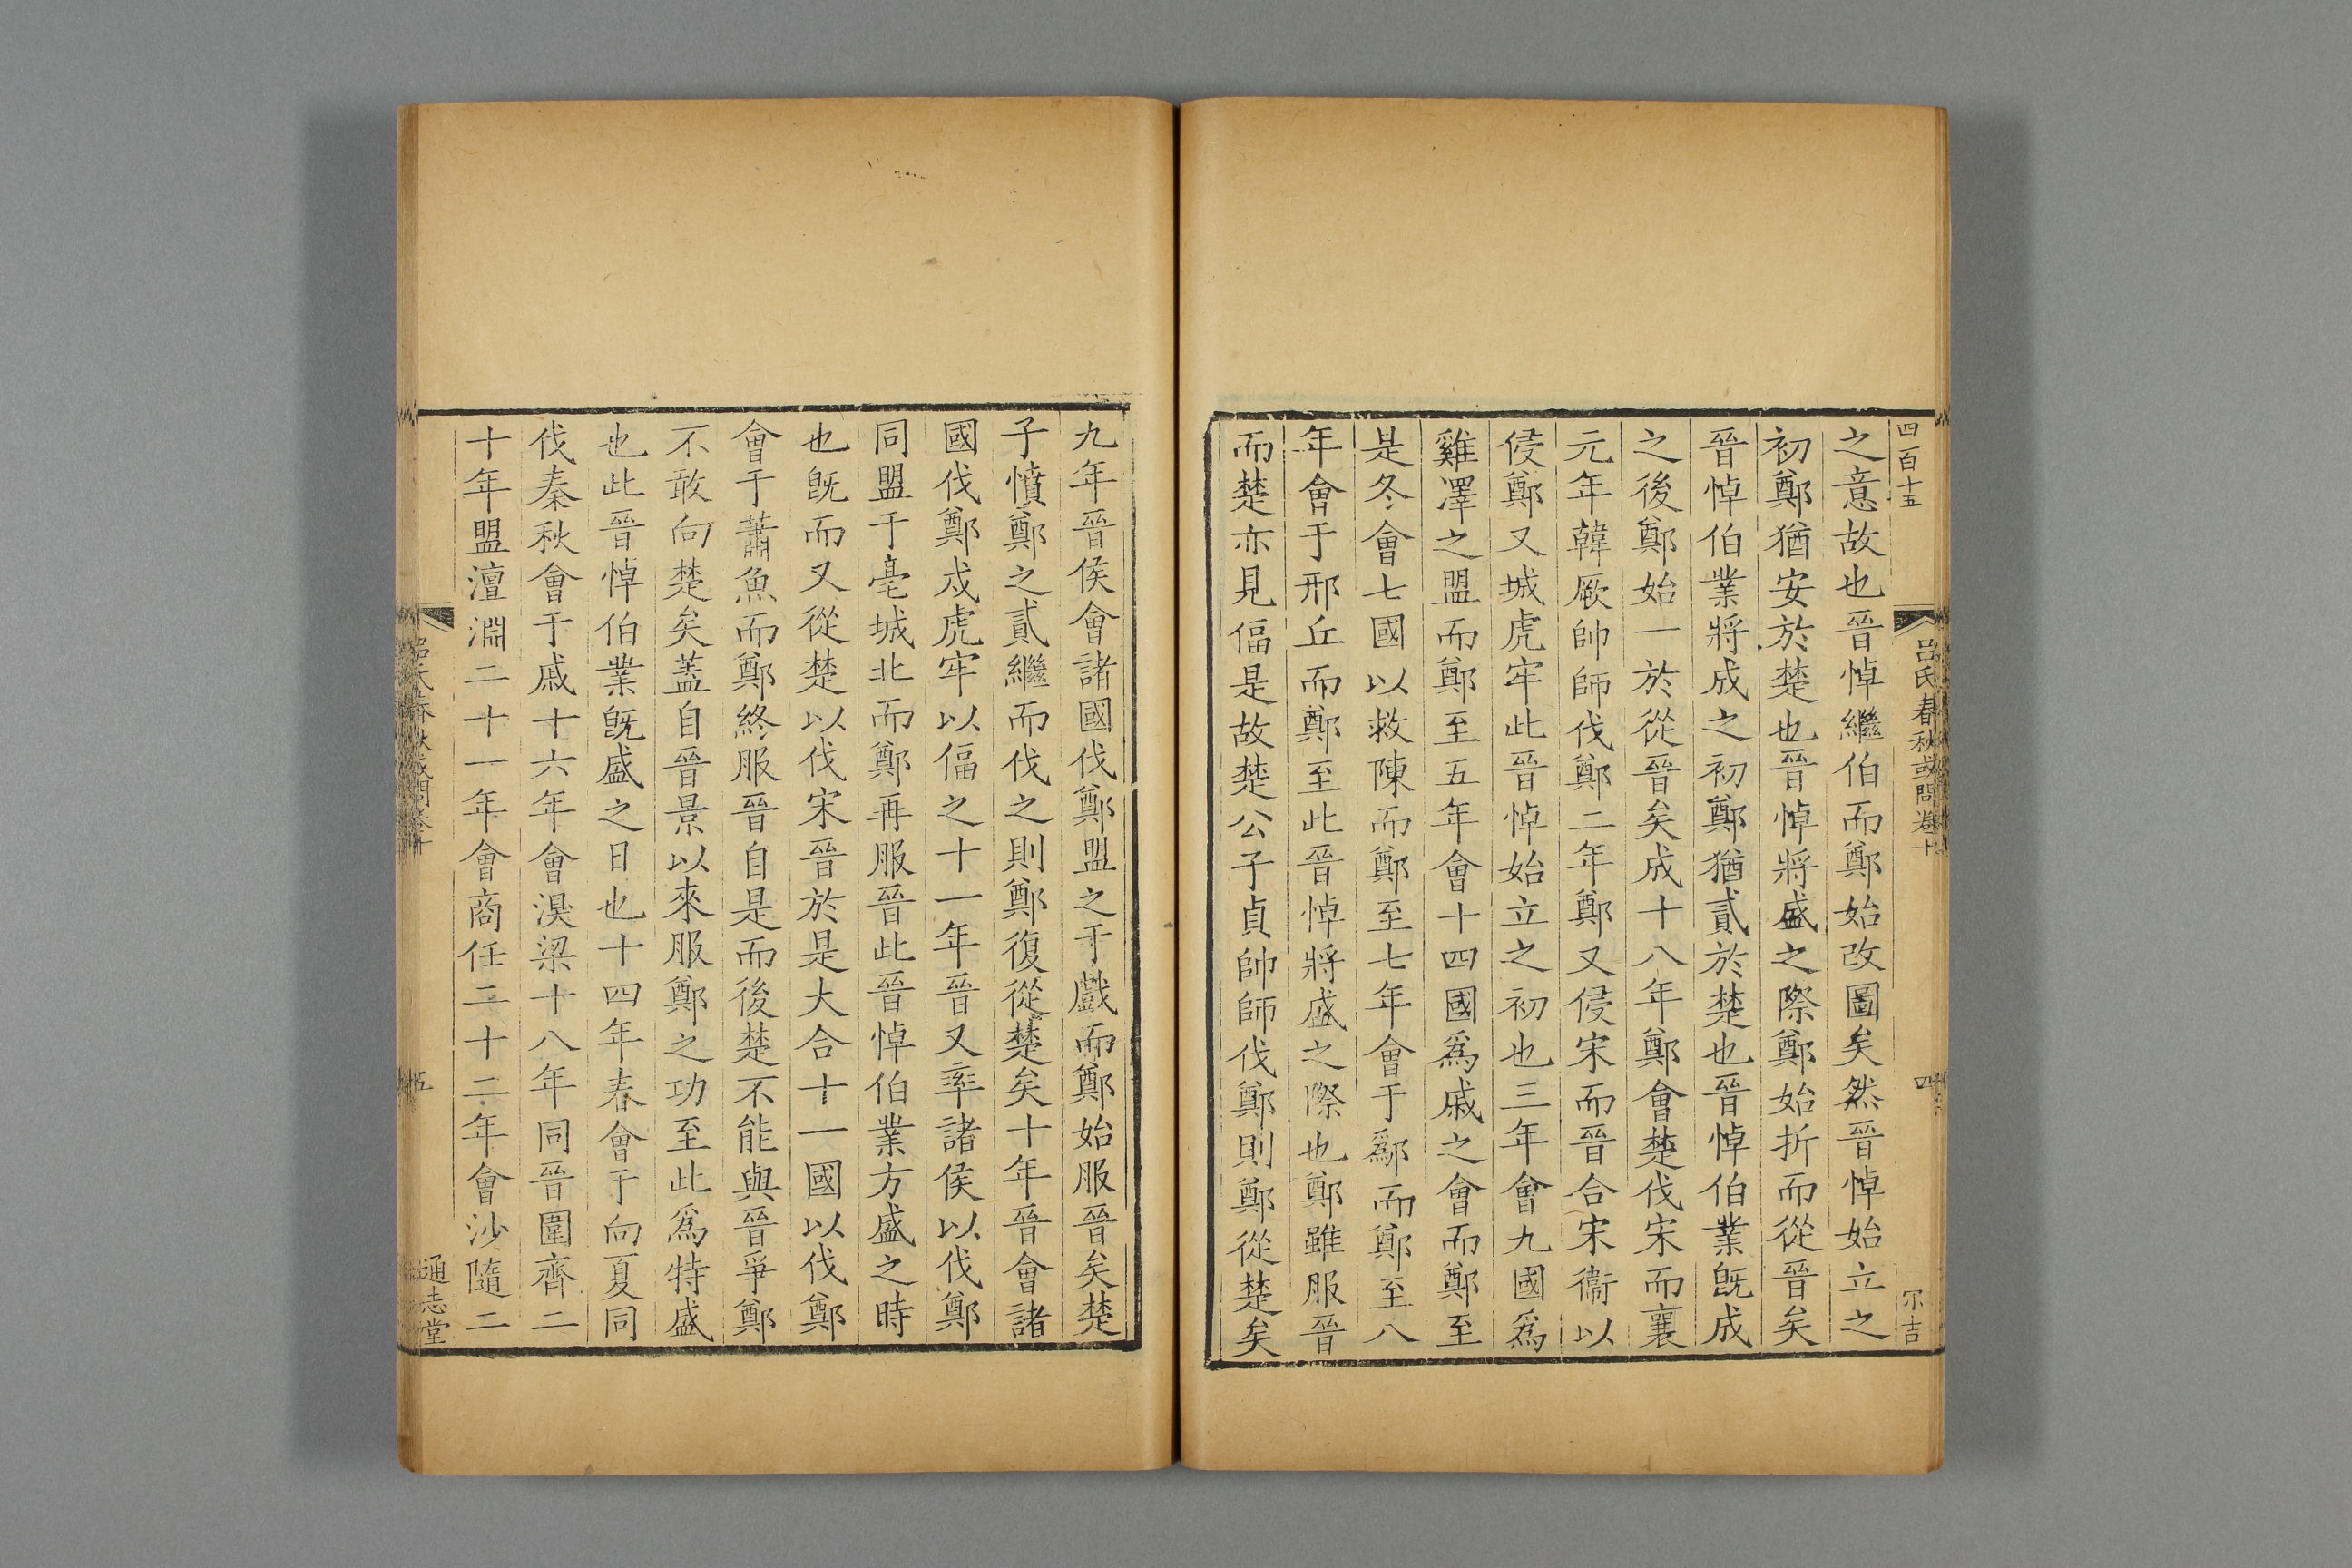 四百十五
呂氏春秋或問卷十
四
尔吉
之意故也晉悼繼伯而鄭始改圖矣然晉悼始立之
初鄭猶安於楚也晉悼將盛之際鄭始折而從晉矣
晉悼伯業將成之初鄭猶貳於楚也晉悼伯業旣成
之後鄭始一於從晉矣成十八年鄭會楚伐宋而襄
元年韓厥帥師伐鄭二年鄭又侵宋而晉合宋衞以
侵鄭又城虎牢此晉悼始立之初也三年會九國爲
雞澤之盟而鄭至五年會十四國爲戚之會而鄭至
是冬會七國以救陳而鄭至七年會于鄬而鄭至八
年會于邢丘而鄭至此晉悼將盛之際也鄭雖服晉
而楚亦見偪是故楚公子貞帥師伐鄭則鄭從楚矣
九年晉侯會諸國伐鄭盟之于戲而鄭始服晉矣楚
子憤鄭之貳繼而伐之則鄭復從楚矣十年晉會諸
國伐鄭戍虎牢以偪之十一年晉又率諸侯以伐鄭
同盟于亳城北而鄭再服晉此晉悼伯業方盛之時
也旣而又從楚以伐宋晉於是大合十一國以伐鄭
會于蕭魚而鄭終服晉自是而後楚不能與晉爭鄭
不敢向楚矣蓋自晉景以來服鄭之功至此爲特盛
也此晉悼伯業旣盛之日也十四年春會于向夏同
伐秦秋會于戚十六年會湨梁十八年同晉圍齊二
十年盟澶淵二十一年會商任二十二年會沙隨二
呂氏春秋或問卷十
五
通志堂